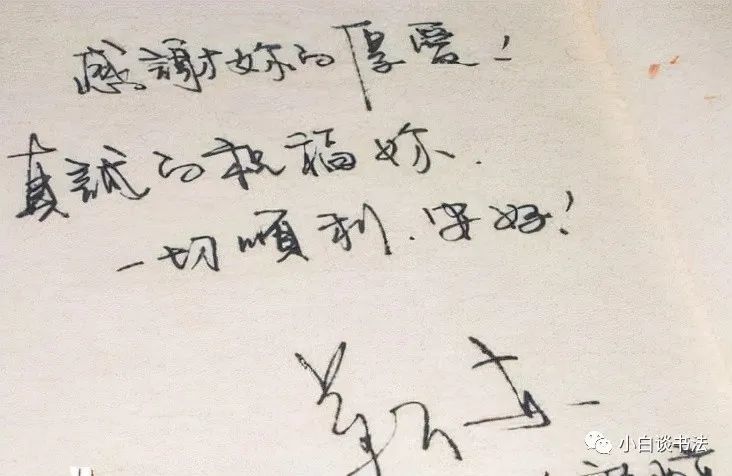 感謝妳的厚愛！
真誠的祝福妳.
一切順利.安好！
小白谈书法